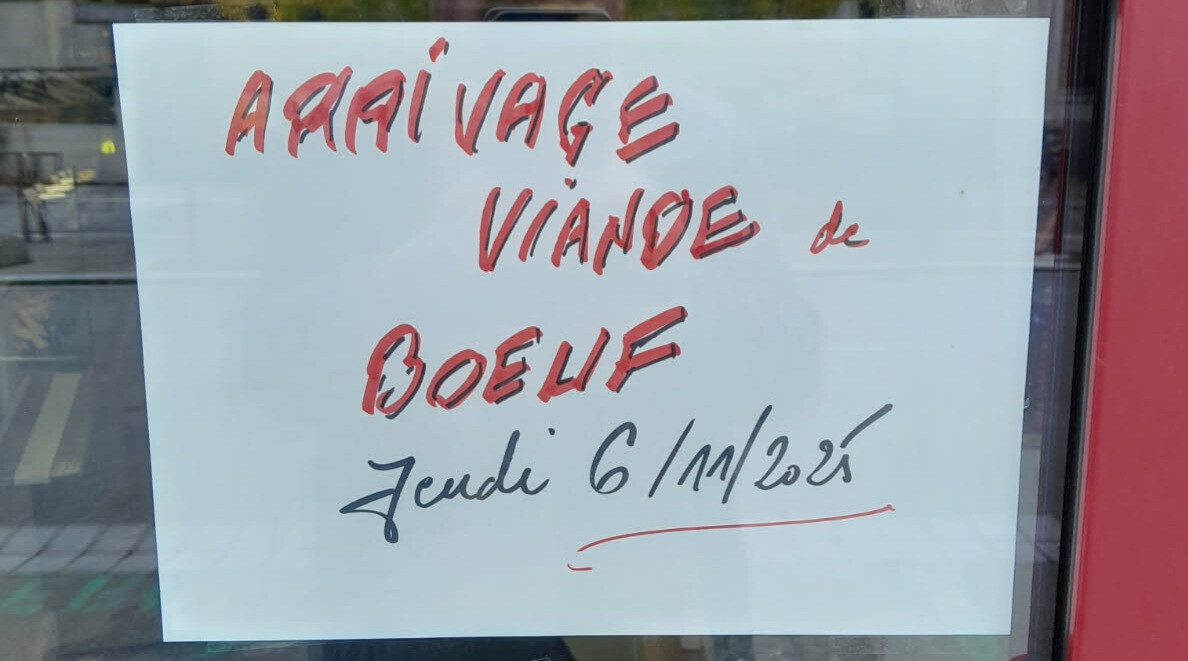 ARRIVAGE
VIANDE de
BOEUF
Jeudi 6/11/2025